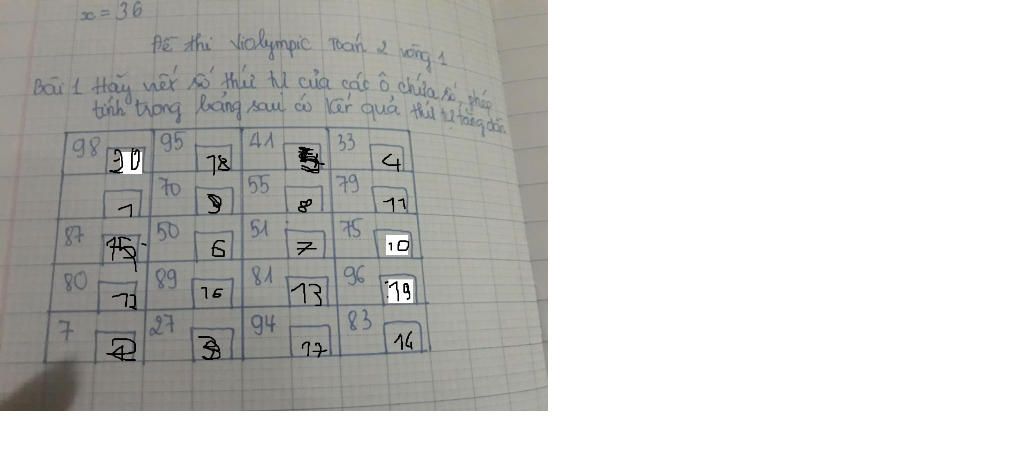 x = 36
Đề thi Violympic Toán 2 vòng 1
Bài 1 Hãy viết số thứ tự của các ô chứa số, phép
tính trong bảng sau có kết quả thứ tự tăng dần
98 20 95 18 41 5 33 4
1 70 9 55 8 79 11
87 15 50 6 51 7 75 10
80 12 89 16 81 13 96 19
7 2 27 3 94 17 83 14